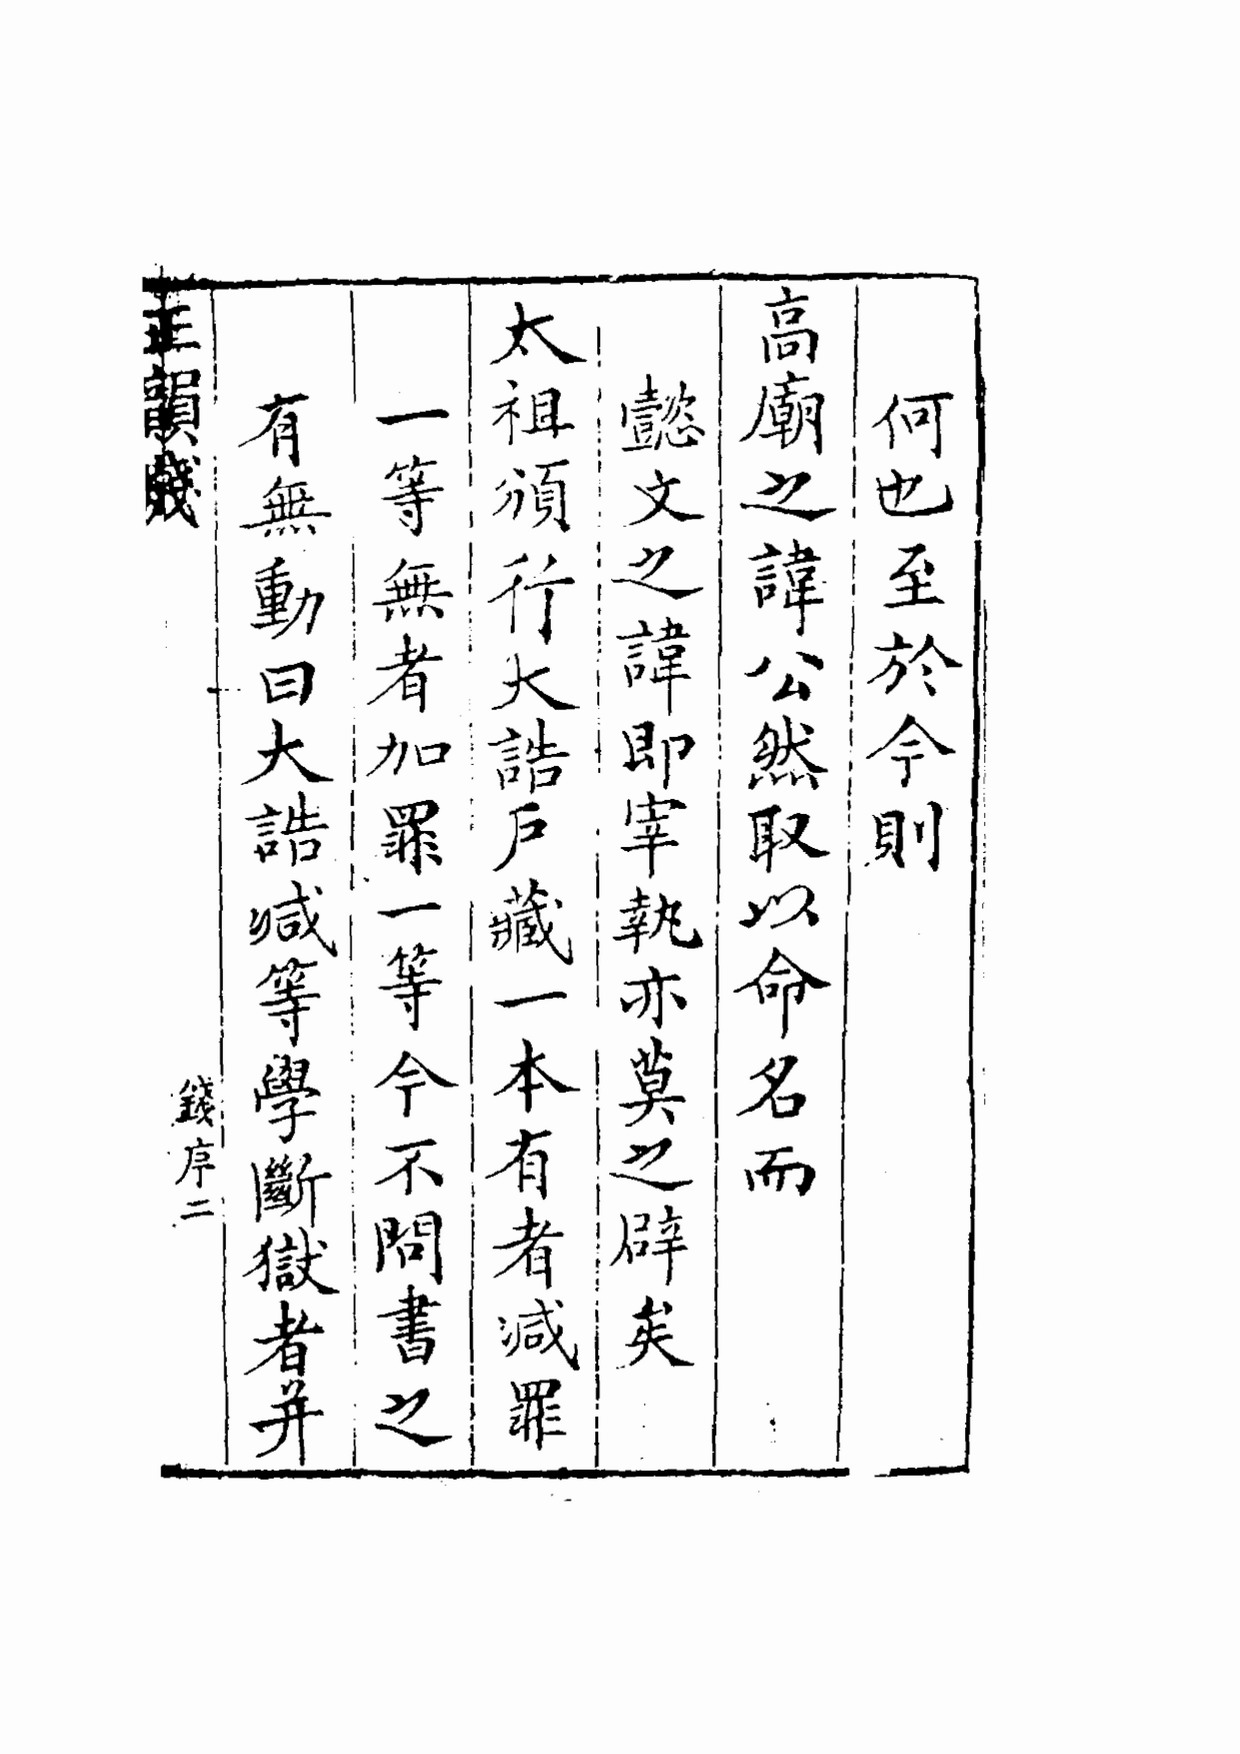 何也至於今則
高廟之諱公然取以命名而
懿文之諱即宰執亦莫之辟矣
太祖頒行大誥戶藏一本有者減罪
一等無者加罪一等今不問書之
有無動曰大誥減等學斷獄者并
正韻牋
錢序二